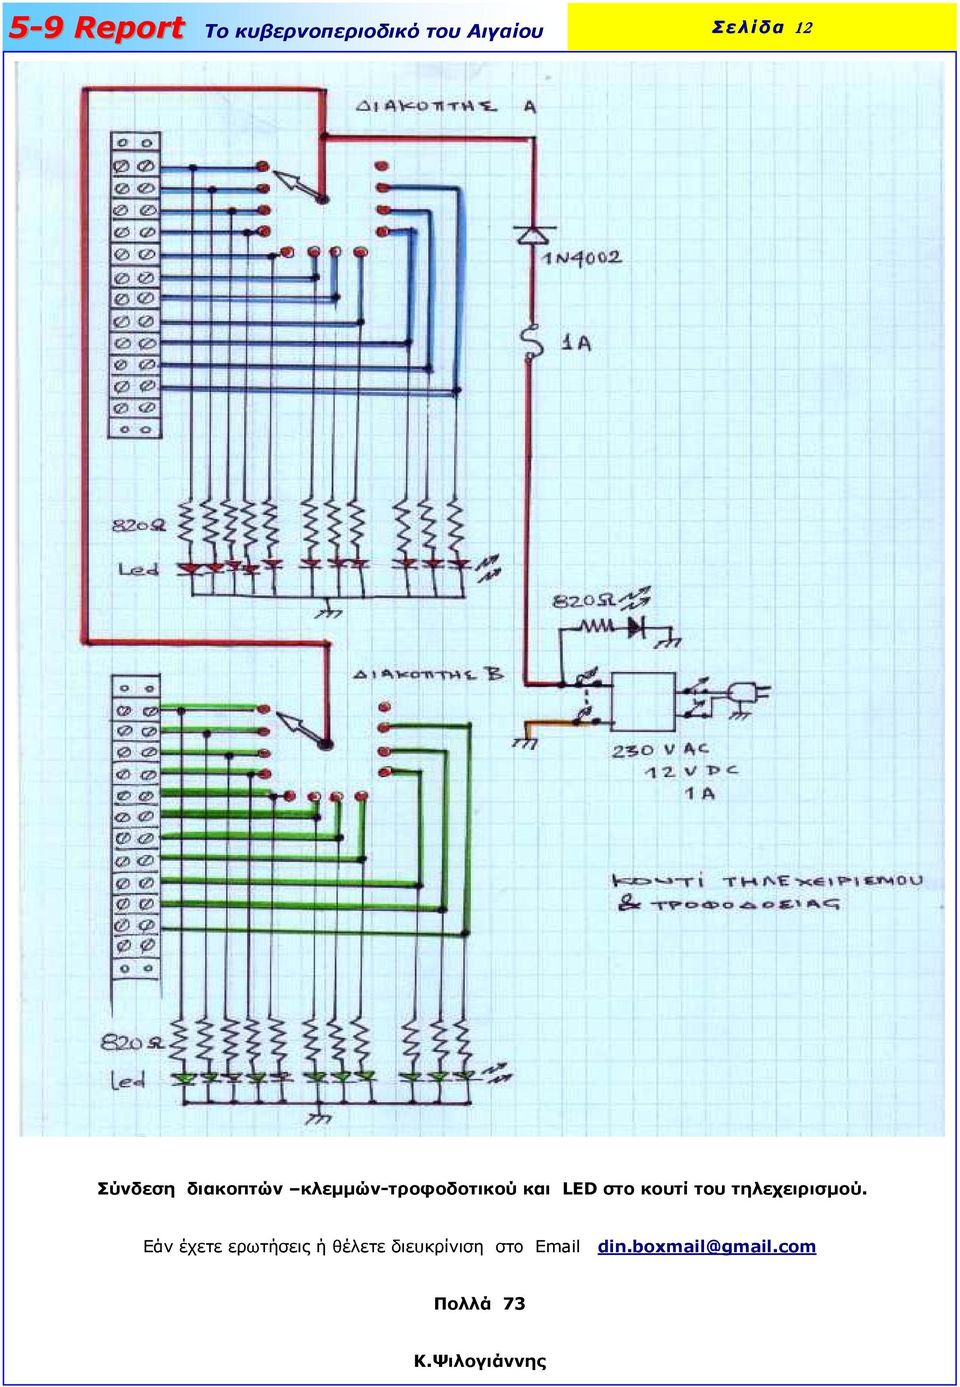 5-9 Report Το κυβερνοπεριοδικό του Αιγαίου
Σελίδα 12
ΔΙΑΚΟΠΤΗΣ Α
1N4002
1A
820Ω
Led
820Ω
ΔΙΑΚΟΠΤΗΣ Β
230 V AC
12 V DC
1A
ΚΟΥΤΙ ΤΗΛΕΧΕΙΡΙΣΜΟΥ
& ΤΡΟΦΟΔΟΣΙΑΣ
820Ω
Led
Σύνδεση διακοπτών –κλεμμών-τροφοδοτικού και LED στο κουτί του τηλεχειρισμού.
Εάν έχετε ερωτήσεις ή θέλετε διευκρίνιση στο Email din.boxmail@gmail.com
Πολλά 73
Κ.Ψιλογιάννης